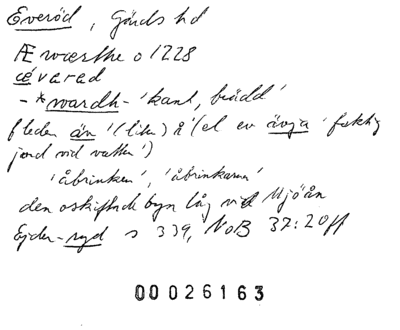 Everöd, Gärds hd
Æ wæsthe o 1228
ævared
- *wardh- 'kant, brädd'
floden än '(liten) å' (el ev ävja 'fuktig
jord vid vatten')
'åbrinken', 'åbrinkarna'
den oskiftade byn låg vid Mjöån
Ejder-ryd s 339, NoB 37:20ff
00026163